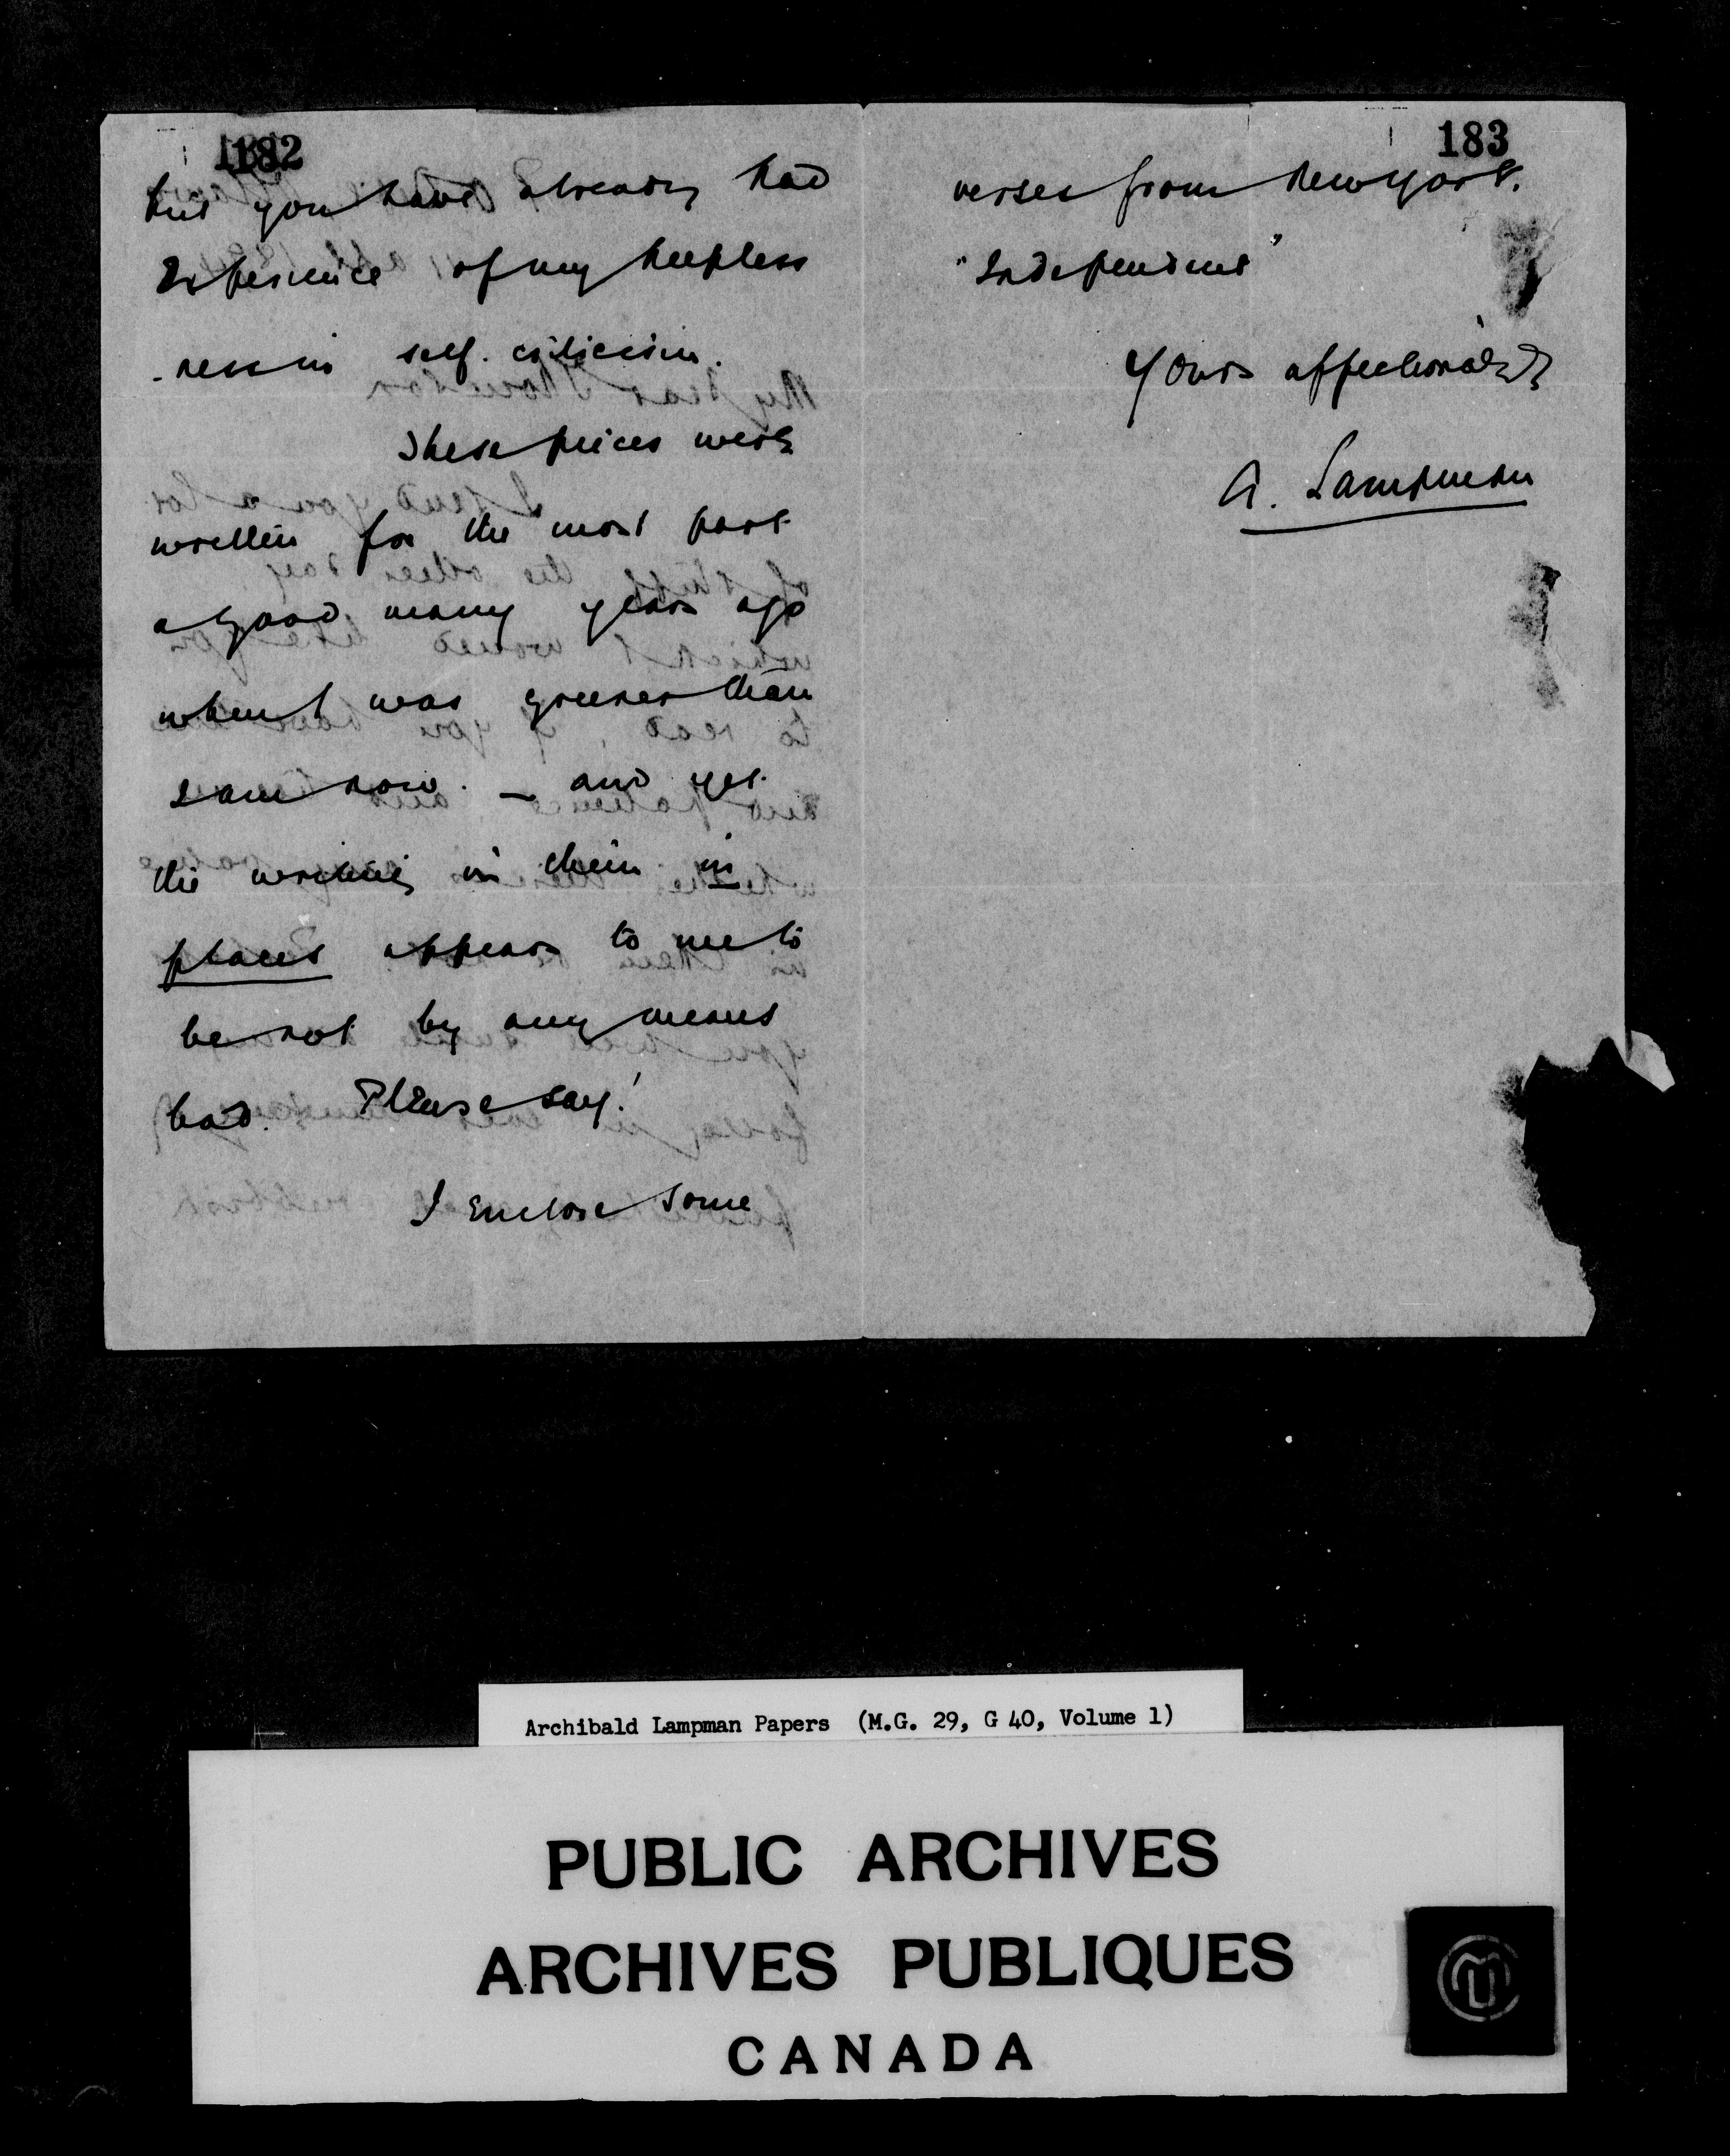 182
but you have already had
experience of my helpless
-ness in self-criticism.
These pieces were
written for the most part
a good many years ago
when I was greener than
I am now. — and yet
the writing in them in
places appears to me to
be not by any means
bad. Please say!
I enclose some
183
verses from New York.
"Independent"
Yours affectionately
A. Lampman
Archibald Lampman Papers (M.G. 29, G 40, Volume 1)
PUBLIC ARCHIVES
ARCHIVES PUBLIQUES
CANADA